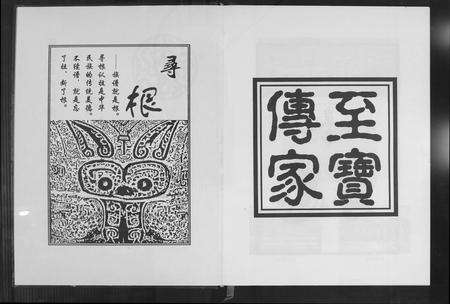 至寶
傳家
尋根
——族谱就是根。
寻根认祖是中华
民族的传统美德。
不续谱，就是忘
了祖，断了根。